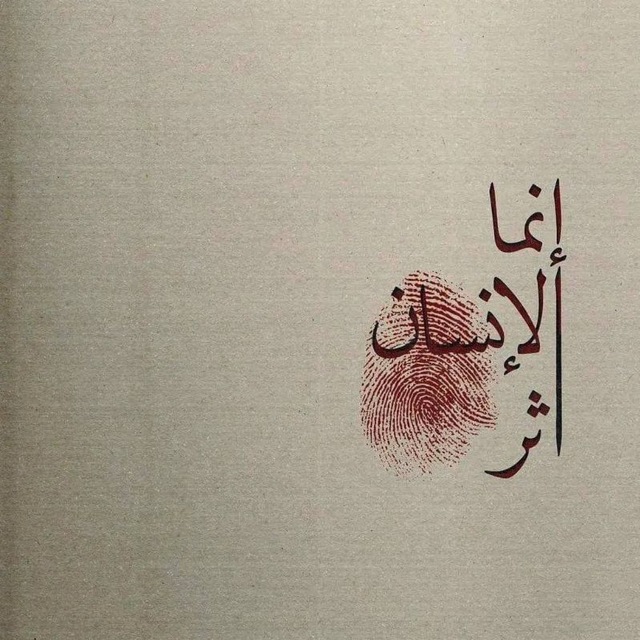 إنما
الإنسان
أثر